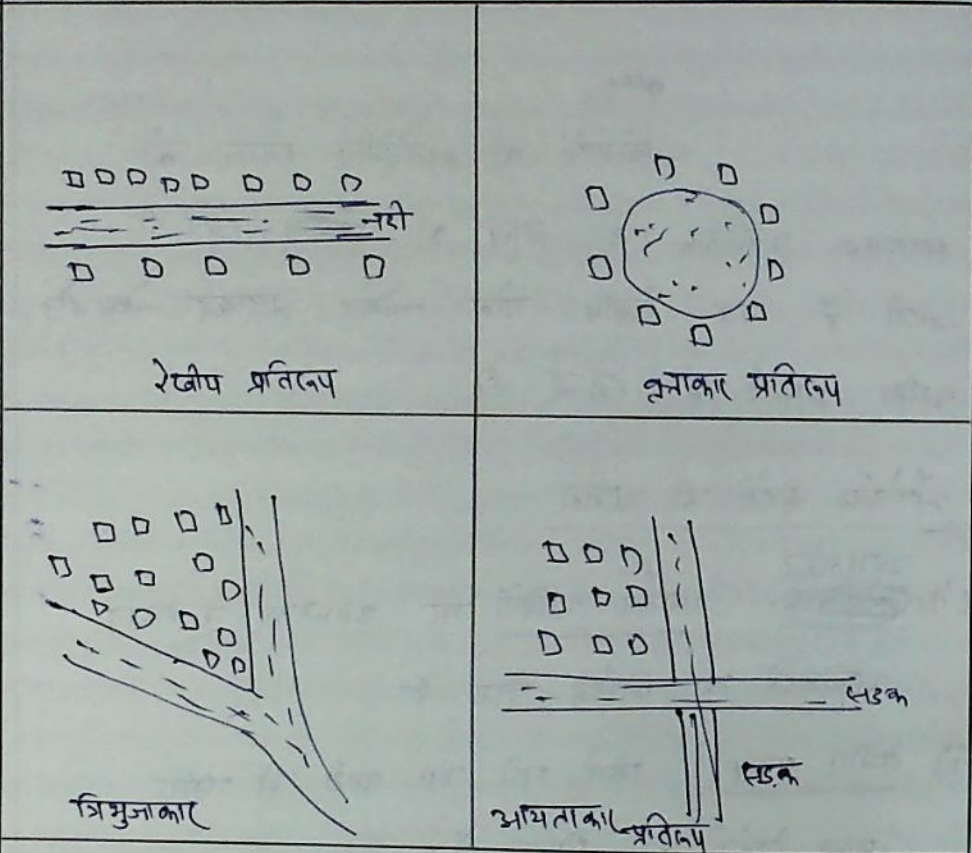 नदी
रेखीय प्रतिरूप
वृत्ताकार प्रतिरूप
त्रिभुजाकार
सडक
सड़क
आयताकार प्रतिरूप